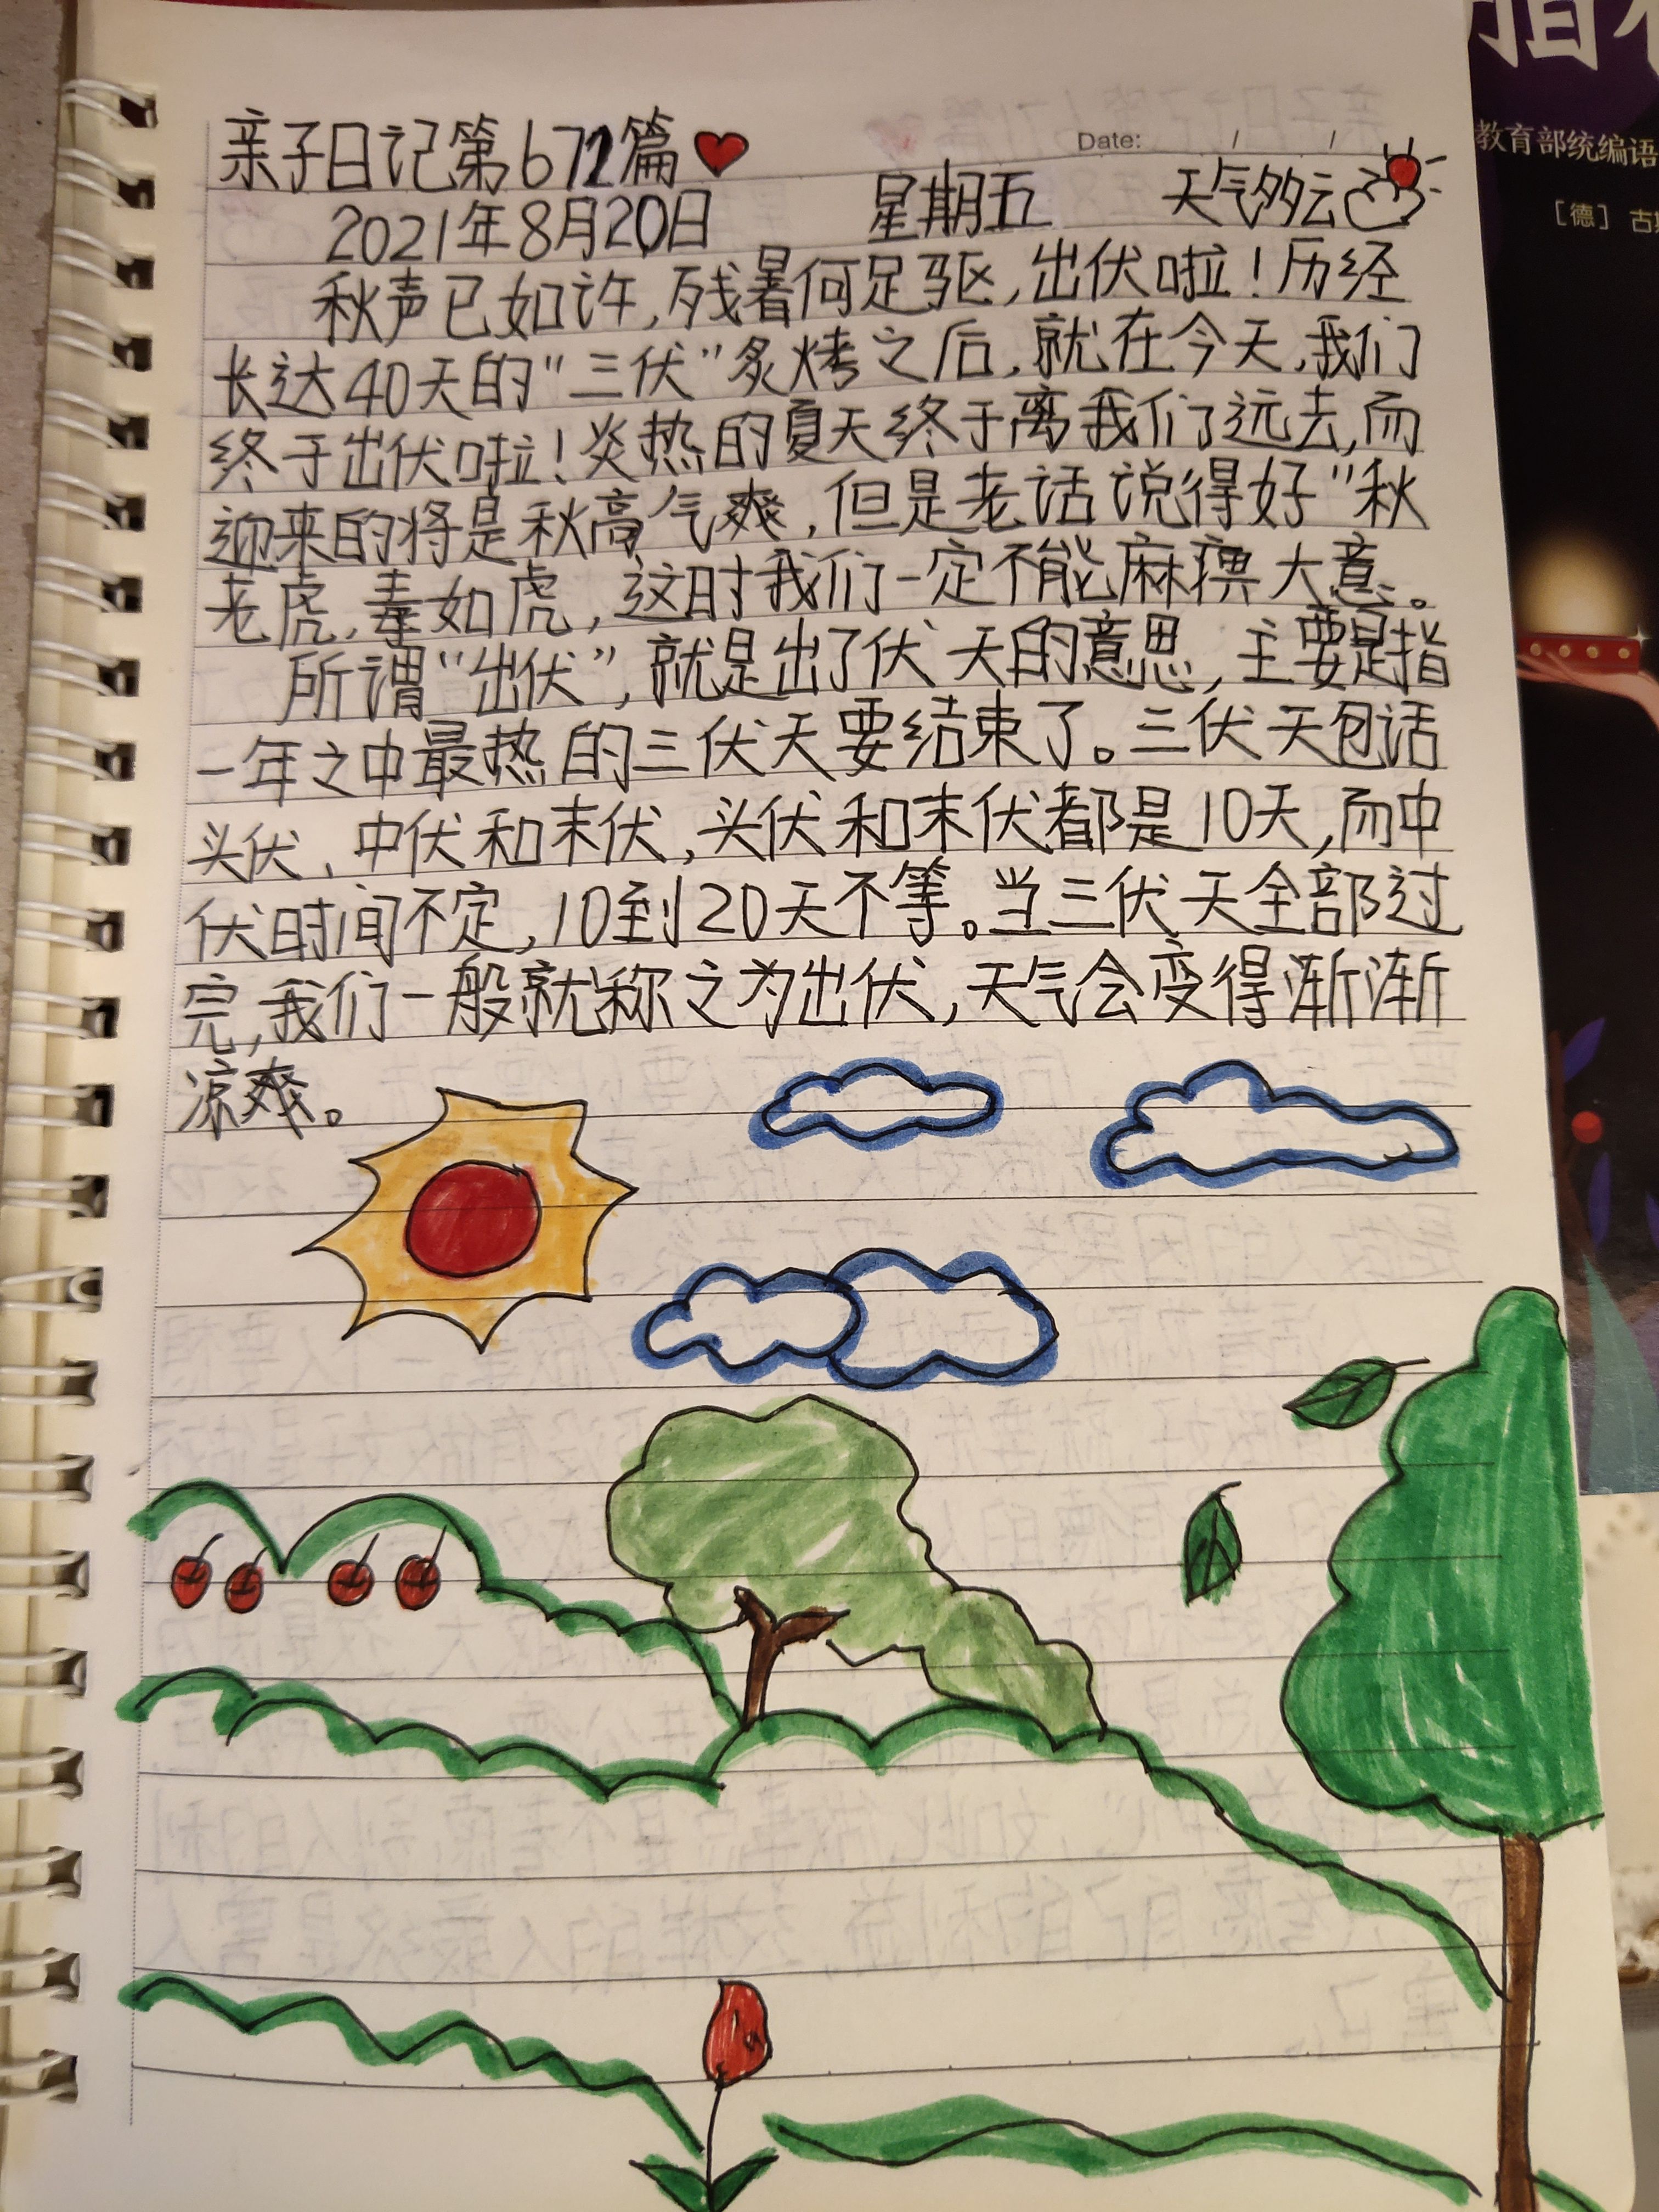 亲子日记第672篇
Date: / /
2021年8月20日 星期五 天气多云
秋声已如许,残暑何足驱,出伏啦!历经
长达40天的"三伏"炙烤之后,就在今天,我们
终于出伏啦!炎热的夏天终于离我们远去,而
迎来的将是秋高气爽,但是老话说得好"秋
老虎,毒如虎,这时我们一定不能麻痹大意。
所谓"出伏",就是出了伏天的意思,主要是指
一年之中最热的三伏天要结束了。三伏天包话
头伏、中伏和末伏,头伏和末伏都是10天,而中
伏时间不定,10到20天不等。当三伏天全部过
完,我们一般就称之为出伏,天气会变得渐渐
凉爽。
教育部统编语
[德] 古